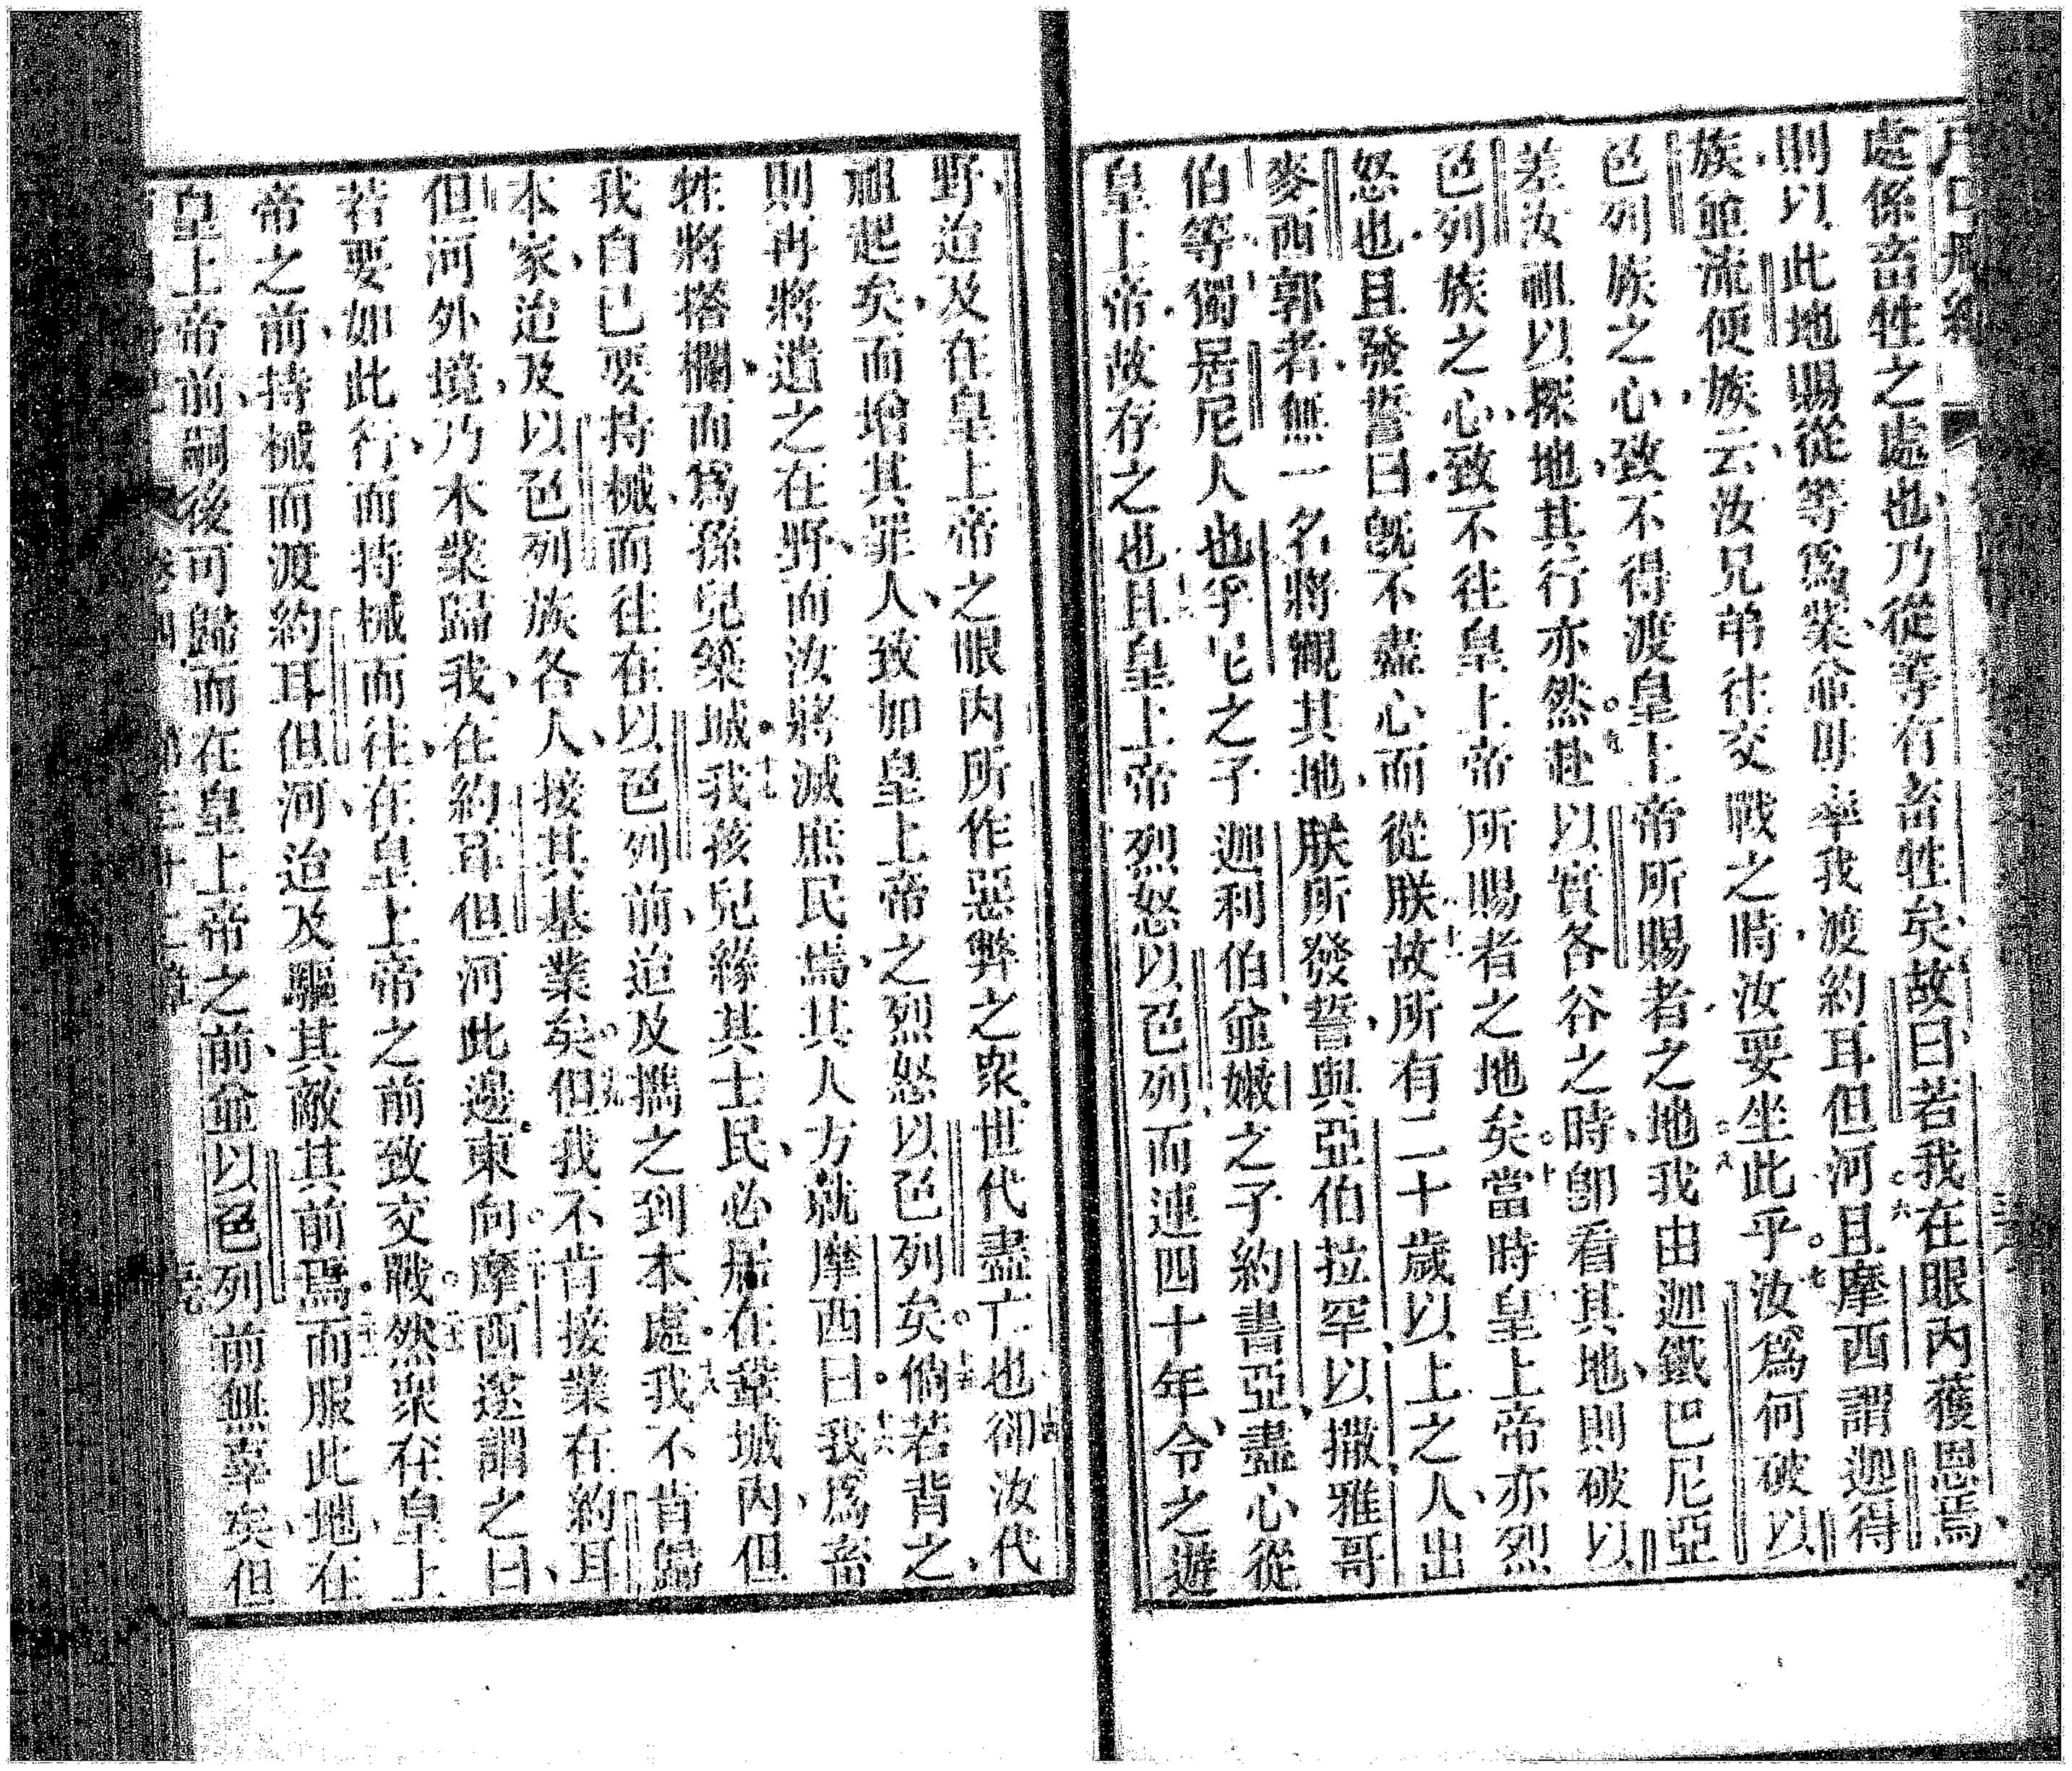 戶口冊紀
處係畜牲之處也乃從等有畜牲矣故曰若我在眼內獲恩焉
則以此地賜從等爲業並毋率我渡約耳但河且摩西謂迦得
族並流便族云汝兄弟往交戰之時汝要坐此乎汝爲何破以
色列族之心致不得渡皇上帝所賜者之地我由迦鐵巴尼亞
差汝祖以探地其行亦然赴以實各谷之時卽看其地則破以
色列族之心致不往皇上帝所賜者之地矣當時皇上帝亦烈
怒也且發誓曰旣不盡心而從朕故所有二十歲以上之人出
麥西郭者無一名將觀其地朕所發誓與亞伯拉罕以撒雅哥
伯等獨居尼人也孚尼之子迦利伯並嫩之子約書亞盡心從
皇上帝故存之也且皇上帝烈怒以色列而連四十年令之遊
野迨及在皇上帝之眼內所作惡弊之衆世代盡亡也卻汝代
祖起矣而增其罪人致如皇上帝之烈怒以色列矣倘若背之
則再將遺之在野而汝將滅庶民焉其人方就摩西曰我爲畜
牲將搭欄而爲孫兒築城我孩兒緣其士民必居在鞏城內但
我自己要持械而往在以色列前迨及攜之到本處我不肯歸
本家迨及以色列族各人接其基業矣但我不肯接業在約耳
但河外境乃本業歸我在約耳但河此邊東向摩西遂謂之曰
若要如此行而持械而往在皇上帝之前致交戰然衆在皇上
帝之前持械而渡約耳但河迨及驅其敵其前焉而服此地在
皇上帝前嗣後可歸而在皇上帝之前並以色列前無辜矣但